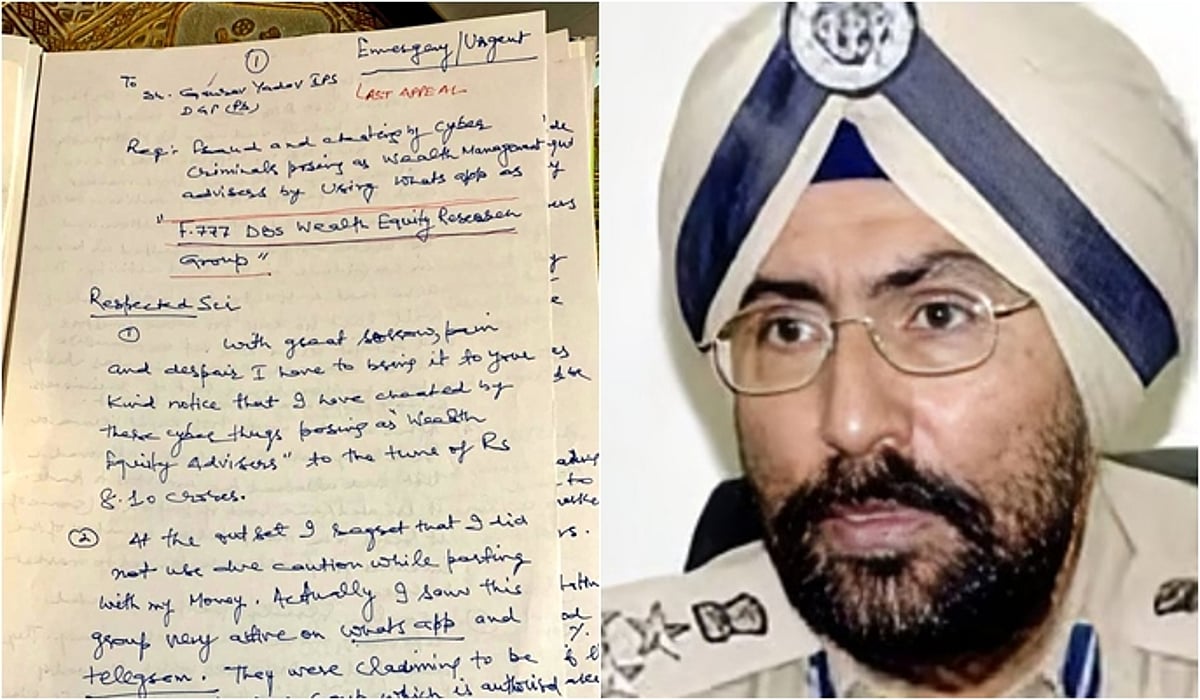 ①
Emmergency/Urgent
To
Sh. Gaurav Yadav IPS
DGP (Pb)
LAST APPEAL
Reg:- Fraud and cheating by Cyber
Criminals posing as Wealth Management
advisers by Using Whats app as
"F.777 DBS Wealth Equity Research
Group"
Respected Sir
① With great sorrow, pain
and despair I have to bring it to your
Kind notice that I have cheated by
these cyber thugs posing as "Wealth
Equity Advisers" to the tune of Rs
8.10 crores.
② At the outset I regret that I did
not use due caution while parting
with my Money. Actually I saw this
group very active on whats app and
telegram. They were claiming to be
which is authorised